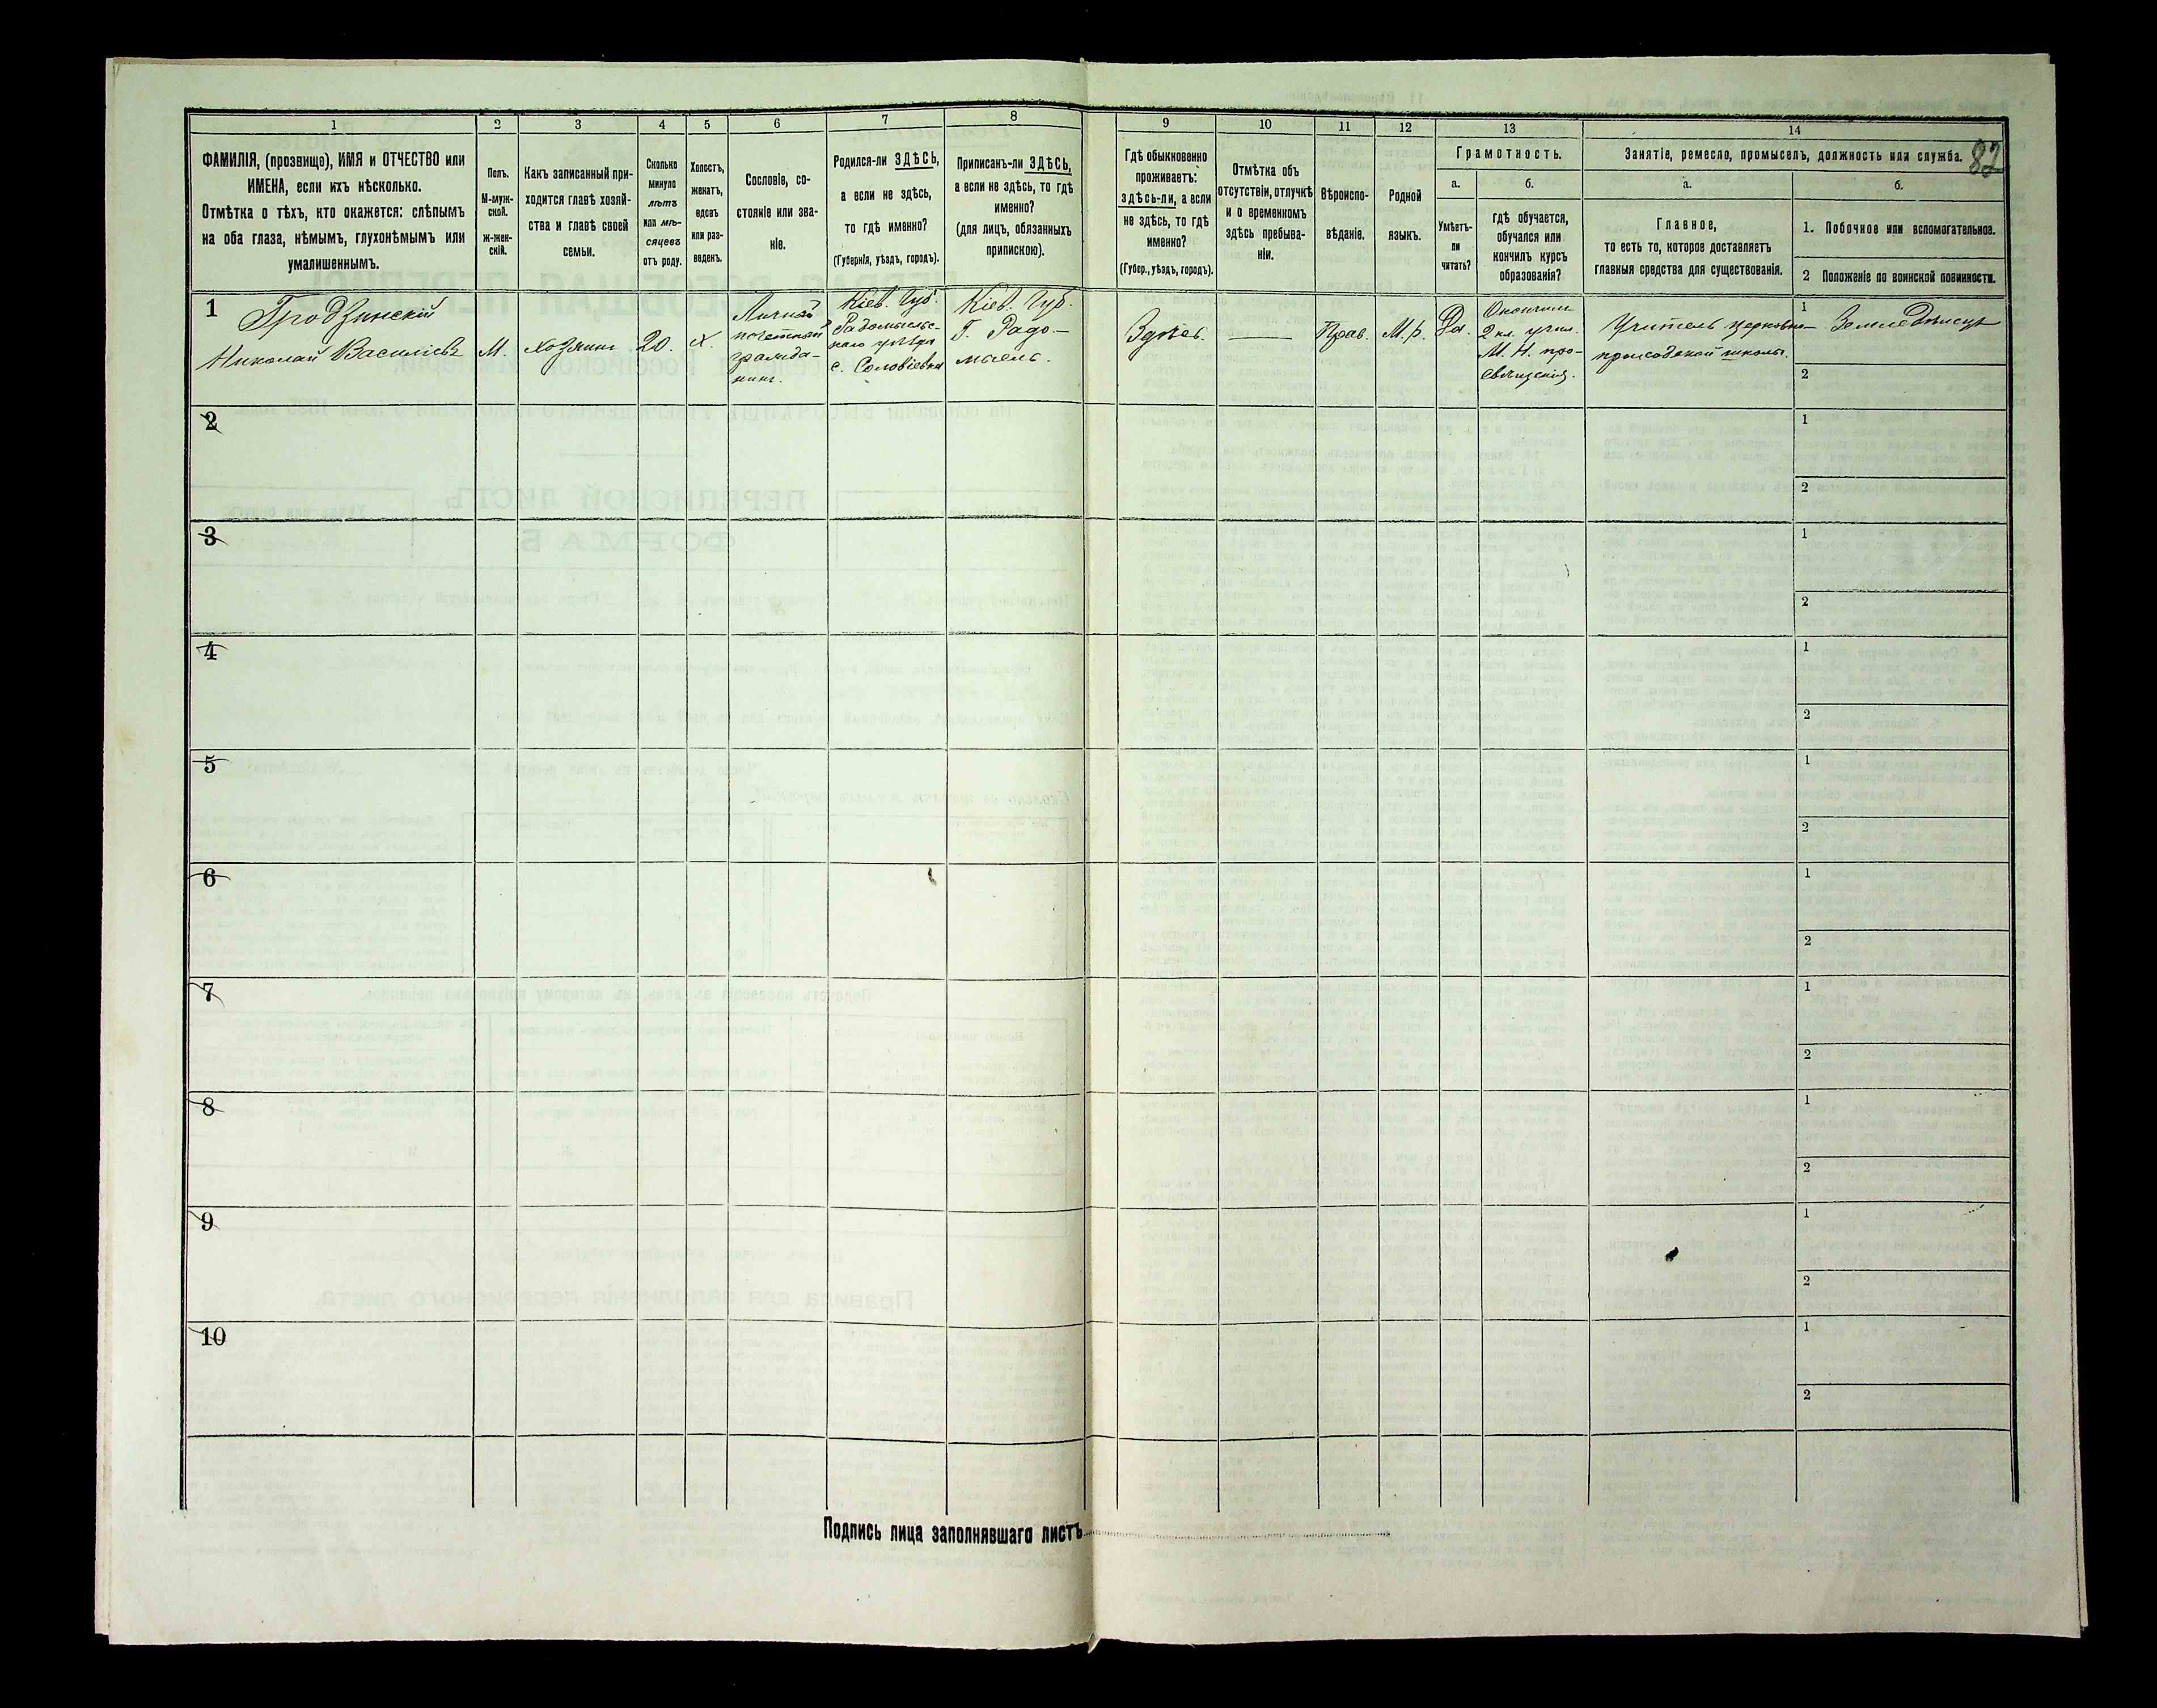 1
ФАМИЛІЯ, (прозвище), ИМЯ и ОТЧЕСТВО или
ИМЕНА, если ихъ нѣсколько.
Отмѣтка о тѣхъ, кто окажется: слѣпымъ
на оба глаза, нѣмымъ, глухонѣмымъ или
умалишеннымъ.
2
Полъ.
М-муж-
ской.
ж-жен-
скій.
3
Какъ записанный при-
ходится главѣ хозяй-
ства и главѣ своей
семьи.
4
Сколько
минуло
лѣтъ
или мѣ-
сяцевъ
отъ роду.
5
Холостъ,
женатъ,
вдовъ
или раз-
веденъ.
6
Сословіе, со-
стояніе или зва-
ніе.
7
Родился-ли ЗДѢСЬ,
а если не здѣсь,
то гдѣ именно?
(Губернія, уѣздъ, городъ).
8
Приписанъ-ли ЗДѢСЬ,
а если не здѣсь, то гдѣ
именно?
(для лицъ, обязанныхъ
припискою).
9
Гдѣ обыкновенно
проживаетъ:
здѣсь-ли, а если
не здѣсь, то гдѣ
именно?
(Губер., уѣздъ, городъ).
10
Отмѣтка объ
отсутствіи, отлучкѣ
и о временномъ
здѣсь пребыва-
ніи.
11
Вѣроиспо-
вѣданіе.
12
Родной
языкъ.
13
Грамотность.
а.
Умѣетъ-
ли
читать?
б.
гдѣ обучается,
обучался или
кончилъ курсъ
образованія?
14
Занятіе, ремесло, промыселъ, должность или служба.
82
а.
Главное,
то есть то, которое доставляетъ
главныя средства для существованія.
б.
1. Побочное или вспомогательное.
2 Положеніе по воинской повинности.
1
Гродзинскій
Николай Василіевъ
М.
хозяинъ
20.
х.
Личный
почетный
гражда-
нинъ.
Кіев. Губ.
Радомысльс-
каго уѣзда
с. Соловіевка
Кіев. Губ.
Г. Радо-
мысль.
Здѣсь.
Прав.
М. р.
Да.
Окончилъ
2 кл. учил.
М. Н. про-
свѣщенія.
Учитель церковно-
приходской школы.
1
Земледѣлецъ
2
2
1
2
3
1
2
4
1
2
5
1
2
6
1
2
7
1
2
8
1
2
9
1
2
10
1
2
Подпись лица заполнявшаго листъ